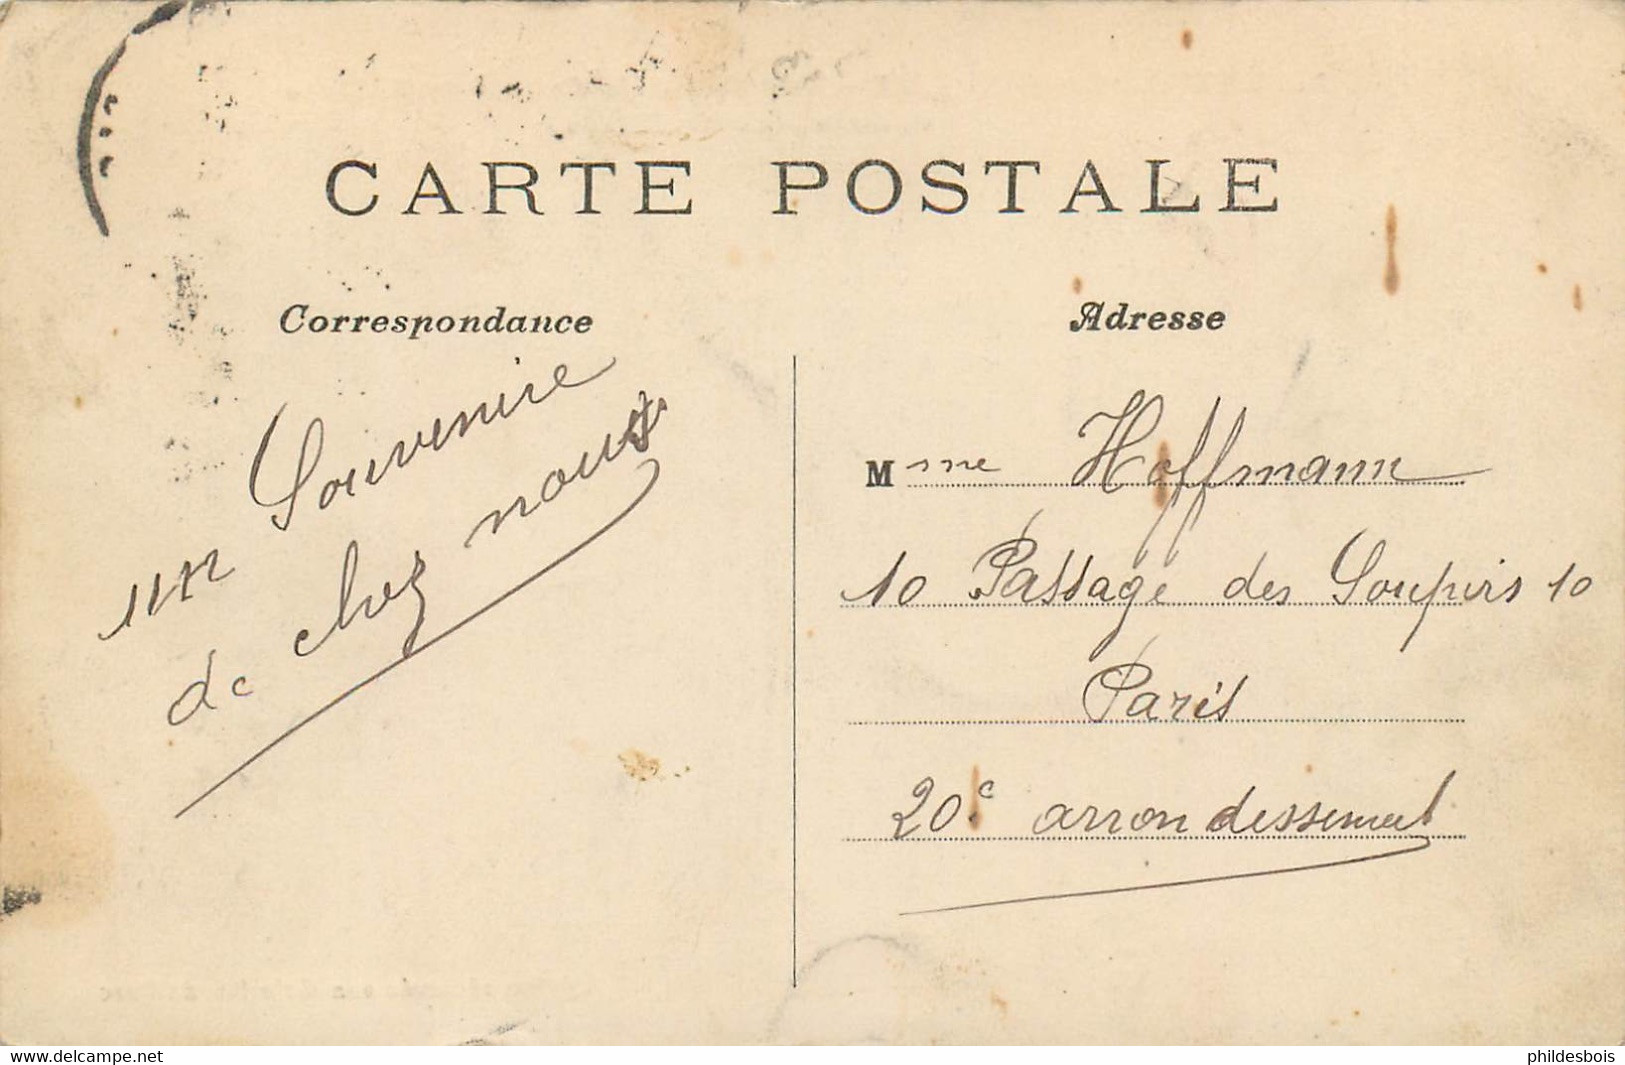 CARTE POSTALE
Correspondance
un Souvenire
de chez nous
Adresse
Mme Hoffmann
10 Passage des Soupirs 10
Paris
20e arrondissement
www.delcampe.net
phildesbois